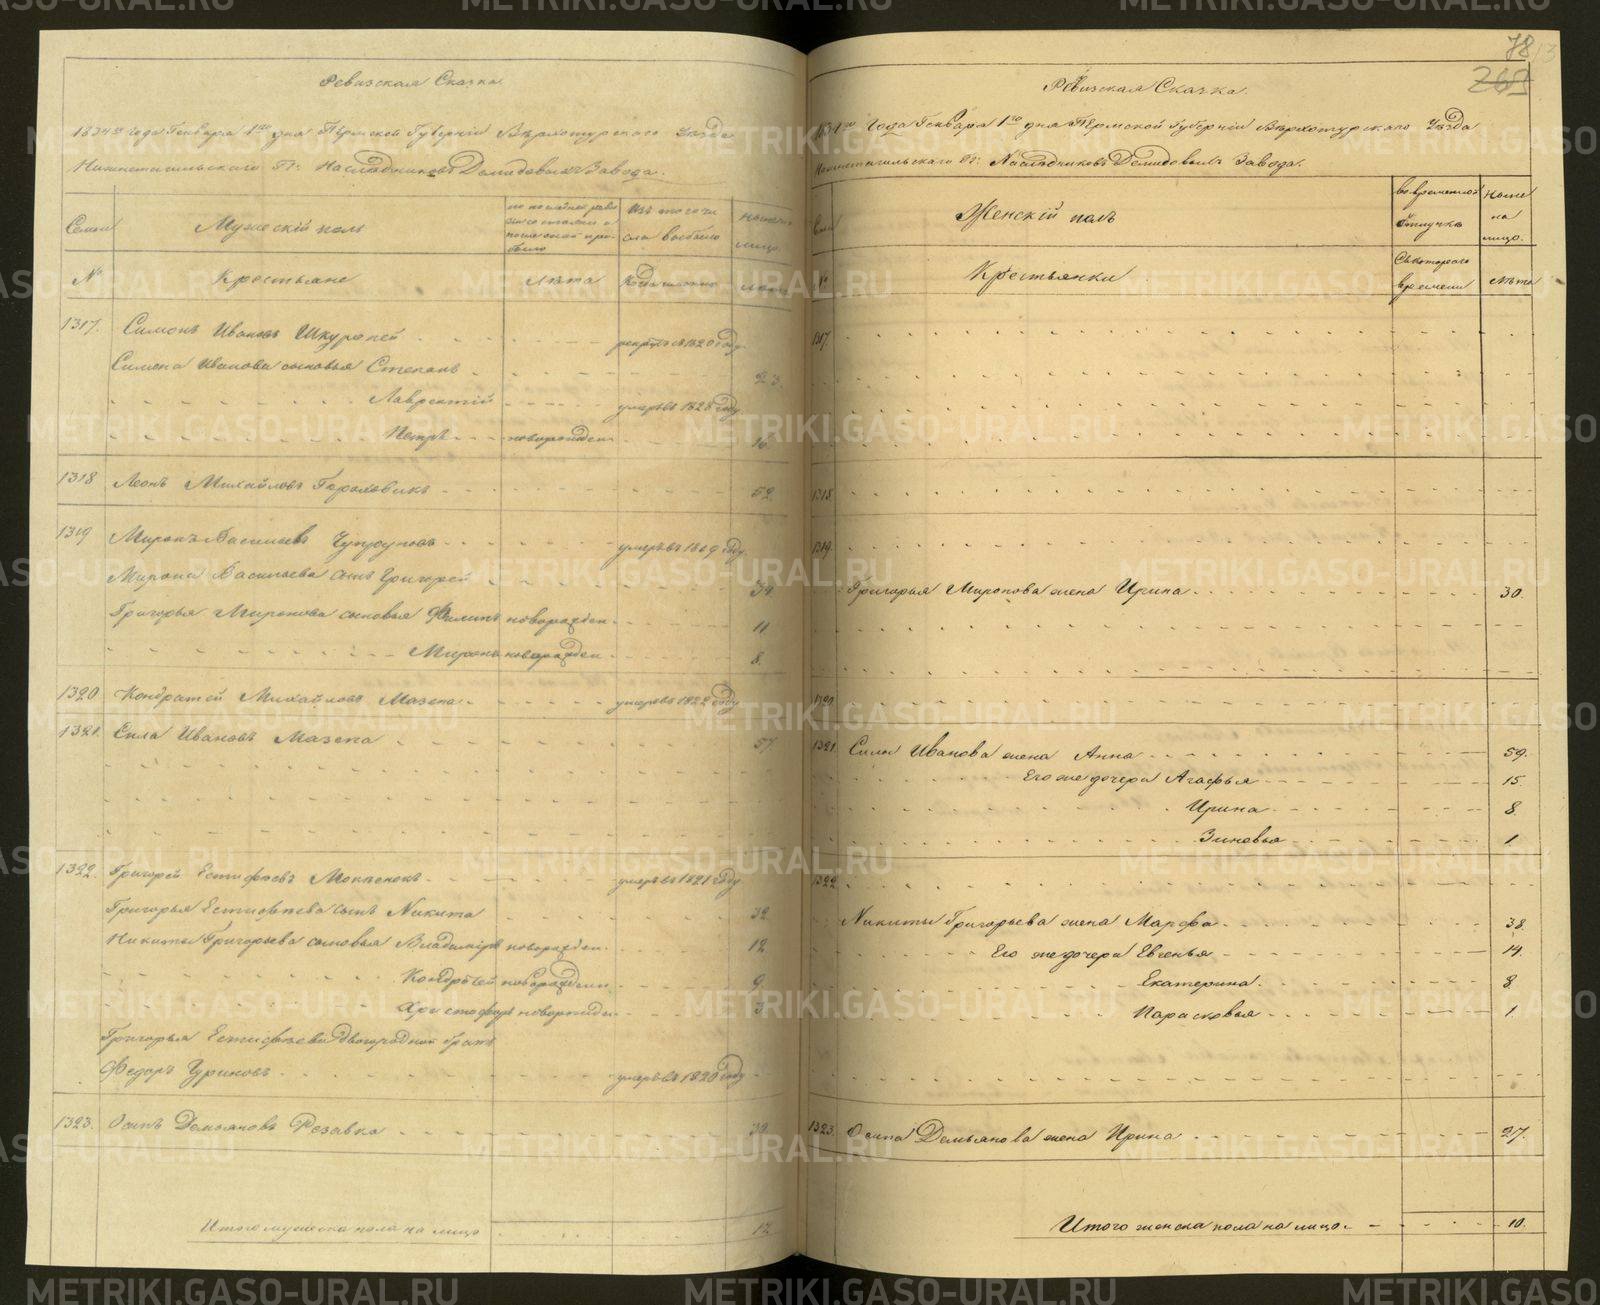 78
Ревизская Сказка
1834го года Генваря 1го дня Пермской Губернии Верхотурского уезда
Нижнетагильского Гг: Наследниковъ Демидовыхъ Завода.
Семьи
Мужескiй полъ
Изъ того числа выбыло
лицо.
№
Крестьяне
Лѣта
Когда имянно
лѣта
1317. Симонъ Ивановъ Шкурапей рекрутъ въ 1820 году.
Симона Иванова сыновья Степанъ 23.
Лаврентiй умеръ въ 1828 году
Петръ новорожден. 16.
1318 Леонъ Михайловъ Гороховикъ 52.
1319 Миронъ Васильевъ умеръ въ 1819 году
Мирона Васильева сынъ Григорей 34
Григорья Миронова сыновья Филипъ новорожден. 11
Миронъ новорожден. 8.
1320 Кондратей Михайловъ Мазепа умеръ въ 1822 году
1321. Сила Ивановъ Мазепа 57.
1322. Григорей Естифѣевъ умеръ въ 1821 году
Григорья Естифѣева сынъ Никита 32
Никиты Григорьева сыновья Владимiръ новорожден. 12
Кондратей новорожден. 9.
Христофоръ новорожден. 3.
Григорья Естифѣева двоюродной братъ
Федоръ Уриковъ умеръ въ 1820 году
1323. Осипъ Демьяновъ Резавка 39.
Итого мужеска пола на лицо 17.
Ревизская Сказка.
1834го Года Генваря 1го дня Пермской Губернiи Верхотурскаго Уѣзда
Нижнетагильскаго Гг: Наследниковъ Демидовыхъ Завода.
Женскiй полъ
во временной отлучкѣ
Ныне на лицо.
№
Крестьянки
Съ котораго времени
лѣта
1317.
1318
1319.
Григорья Миронова жена Ирина 30.
1320
1321. Силы Иванова жена Анна 59.
Его же дочери Агафья 15
Ирина 8.
Зиновья 1
1322
Никиты Григорьева жена Марфа 38.
Его же дочери Евгенья 14.
Екатерина 8
Парасковья 1
1323 Осипа Демьянова жена Ирина 27.
Итого женска пола на лицо 10.
METRIKI.GASO-URAL.RU